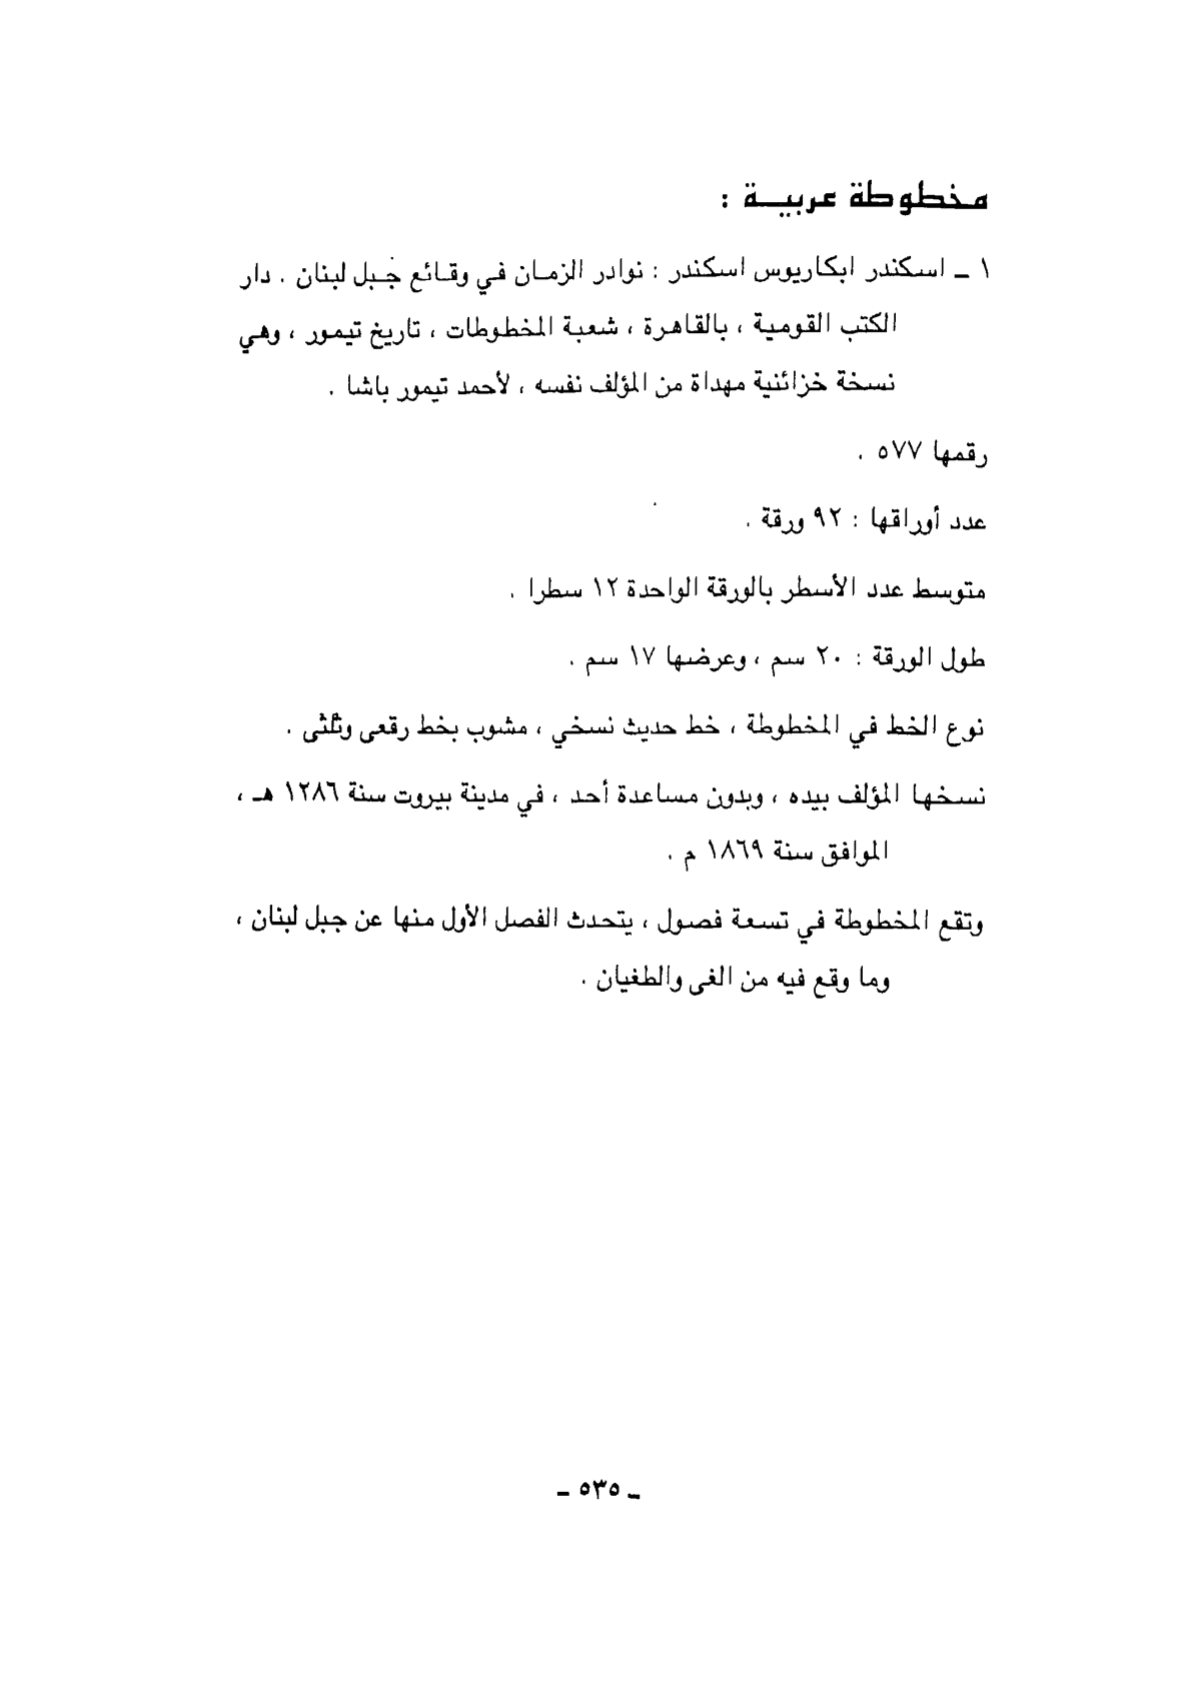 مخطوطة عربية :
١ ـ اسكندر ابكاريوس اسكندر : نوادر الزمان في وقائع جبل لبنان . دار
الكتب القومية ، بالقاهرة ، شعبة المخطوطات ، تاريخ تيمور ، وهي
نسخة خزائنية مهداة من المؤلف نفسه ، لأحمد تيمور باشا .
رقمها ٥٧٧ .
عدد أوراقها : ٩٢ ورقة .
متوسط عدد الأسطر بالورقة الواحدة ١٢ سطرا .
طول الورقة : ٢٠ سم ، وعرضها ١٧ سم .
نوع الخط في المخطوطة ، خط حديث نسخي ، مشوب بخط رقعى وثلثى .
نسخها المؤلف بيده ، وبدون مساعدة أحد ، في مدينة بيروت سنة ١٢٨٦ هـ ،
الموافق سنة ١٨٦٩ م .
وتقع المخطوطة في تسعة فصول ، يتحدث الفصل الأول منها عن جبل لبنان ،
وما وقع فيه من الغى والطغيان .
ـ ٥٣٥ ـ